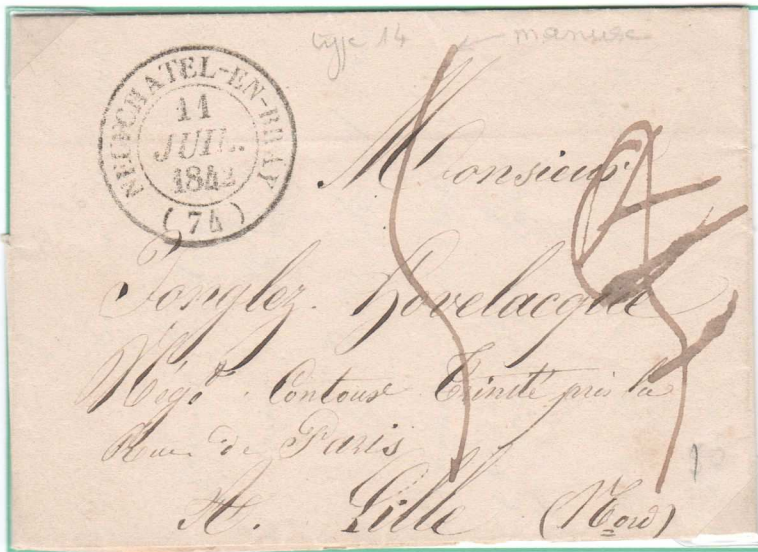 type 14 manusc
NEUFCHATEL-EN-BRAY
11
JUIL.
1842
(74)
Monsieur
Jonglez-Hovelacque
Négt. Contour Trinité près la
Rue de Paris
A. Lille (Nord)